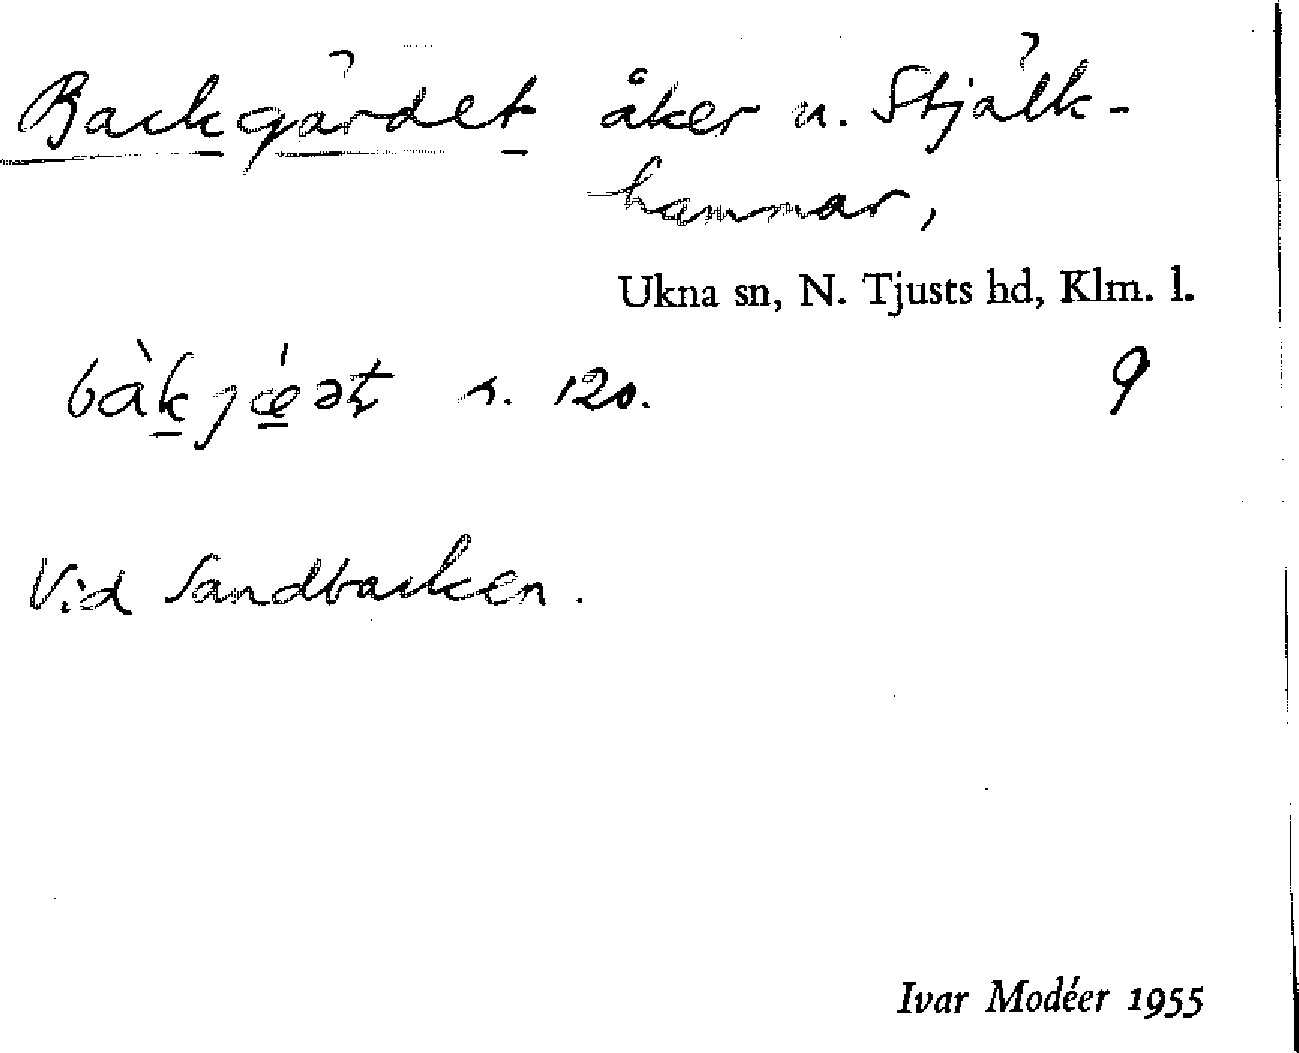 Backgärdet åker u. Stjälk-
hammar,
Ukna sn, N. Tjusts hd, Klm. l.
s. 120. 9
Vid Sandbacken.
Ivar Modéer 1955